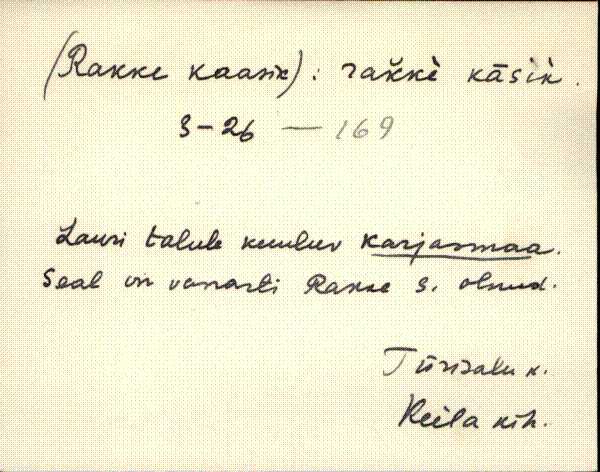 (Rakke kaasik) : rakkè kāsik.
3-26 — 169
Lauri talule kuuluv karjasmaa.
Seal on vanasti Rakke s. olnud.
Türisalu k.
Keila kih.